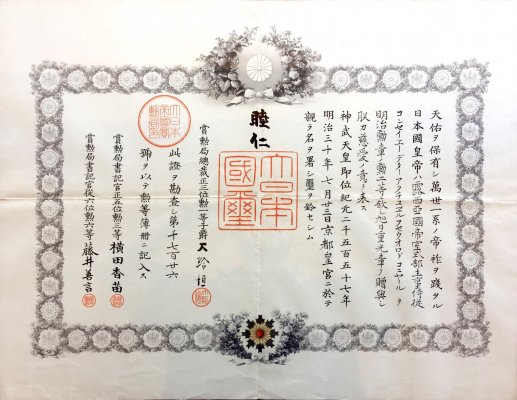 天佑ヲ保有シ萬世一系ノ帝祚ヲ踐タル
日本國皇帝ハ露西亞國帝室式部主事侍從
コンセイエーデター アクチュエル ヲ
明治勳章ノ勳二等ニ叙シ旭日重光章ヲ贈與シ
朕カ慈愛ノ意ヲ表ス
神武天皇即位紀元二千五百五十七年
明治三十年七月廿三日京都皇宮ニ於テ
親ラ名ヲ署シ璽ヲ鈐セシム
睦仁
大日本
國璽
賞勲局總裁正三位勲一等子爵大給恒
此證ヲ勘査シ第千七百廿六
號ヲ以テ勲等簿冊ニ記入ス
賞勲局書記官正五位勲三等横田香苗
賞勲局書記官從六位勲六等藤井善言